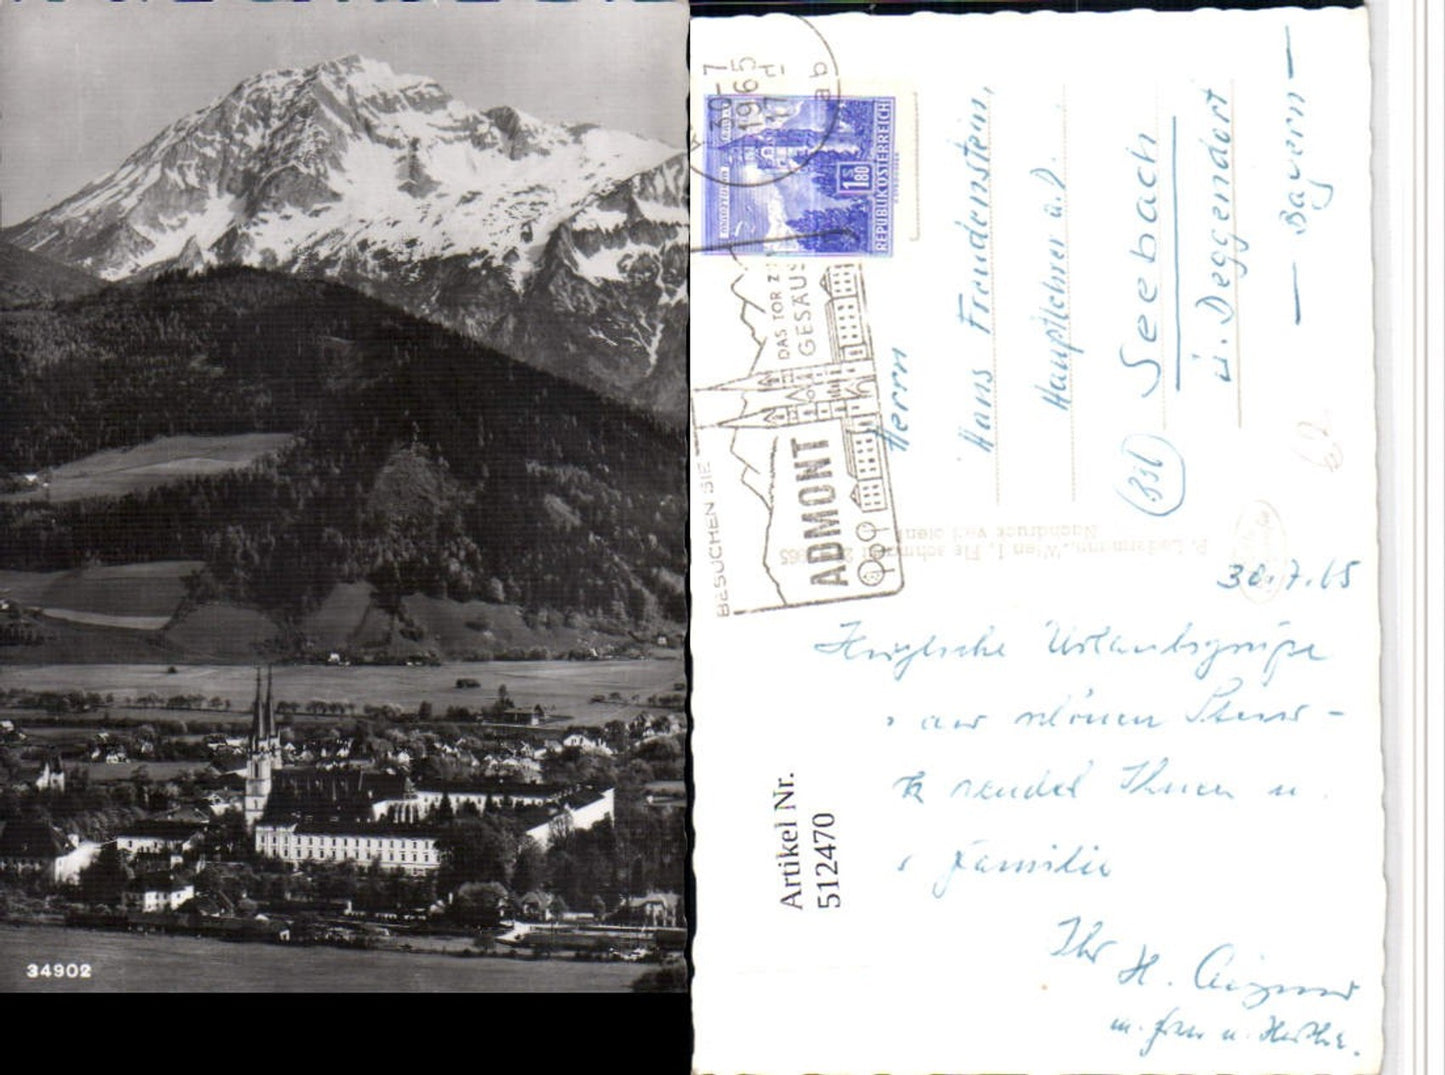 34902
30.-7
1965
17
ab
1 S 80
REPUBLIK ÖSTERREICH
BESUCHEN SIE
ADMONT
DAS TOR Z
GESÄUS
Herrn
Hans Freudenstein,
Hauptlehrer a.D.
Seebach
ü. Deggendorf
— Bayern —
P. Ledermann, Wien I,
Nachdruck verboten
30.7.65
Herzliche Urlaubsgrüße
aus schönen
sendet Ihnen u.
Familie
Ihr H.
m. Frau u.
Artikel Nr.
512470